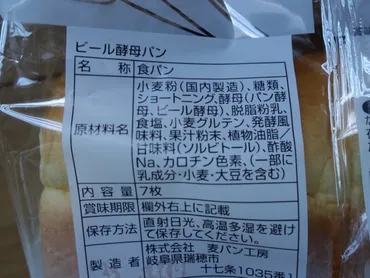 ビール酵母パン
名 称 食パン
原材料名 小麦粉(国内製造)、糖類、
ショートニング、酵母(パン酵
母、ビール酵母)、脱脂粉乳、
食塩、小麦グルテン、発酵風
味料、果汁粉末、植物油脂/
甘味料(ソルビトール)、酢酸
Na、カロチン色素、(一部に
乳成分・小麦・大豆を含む)
内 容 量 7枚
賞味期限 欄外右上に記載
保存方法 直射日光、高温多湿を避け
て保存してください。
製造者 株式会社 麦パン工房
岐阜県瑞穂市
十七条1035番1